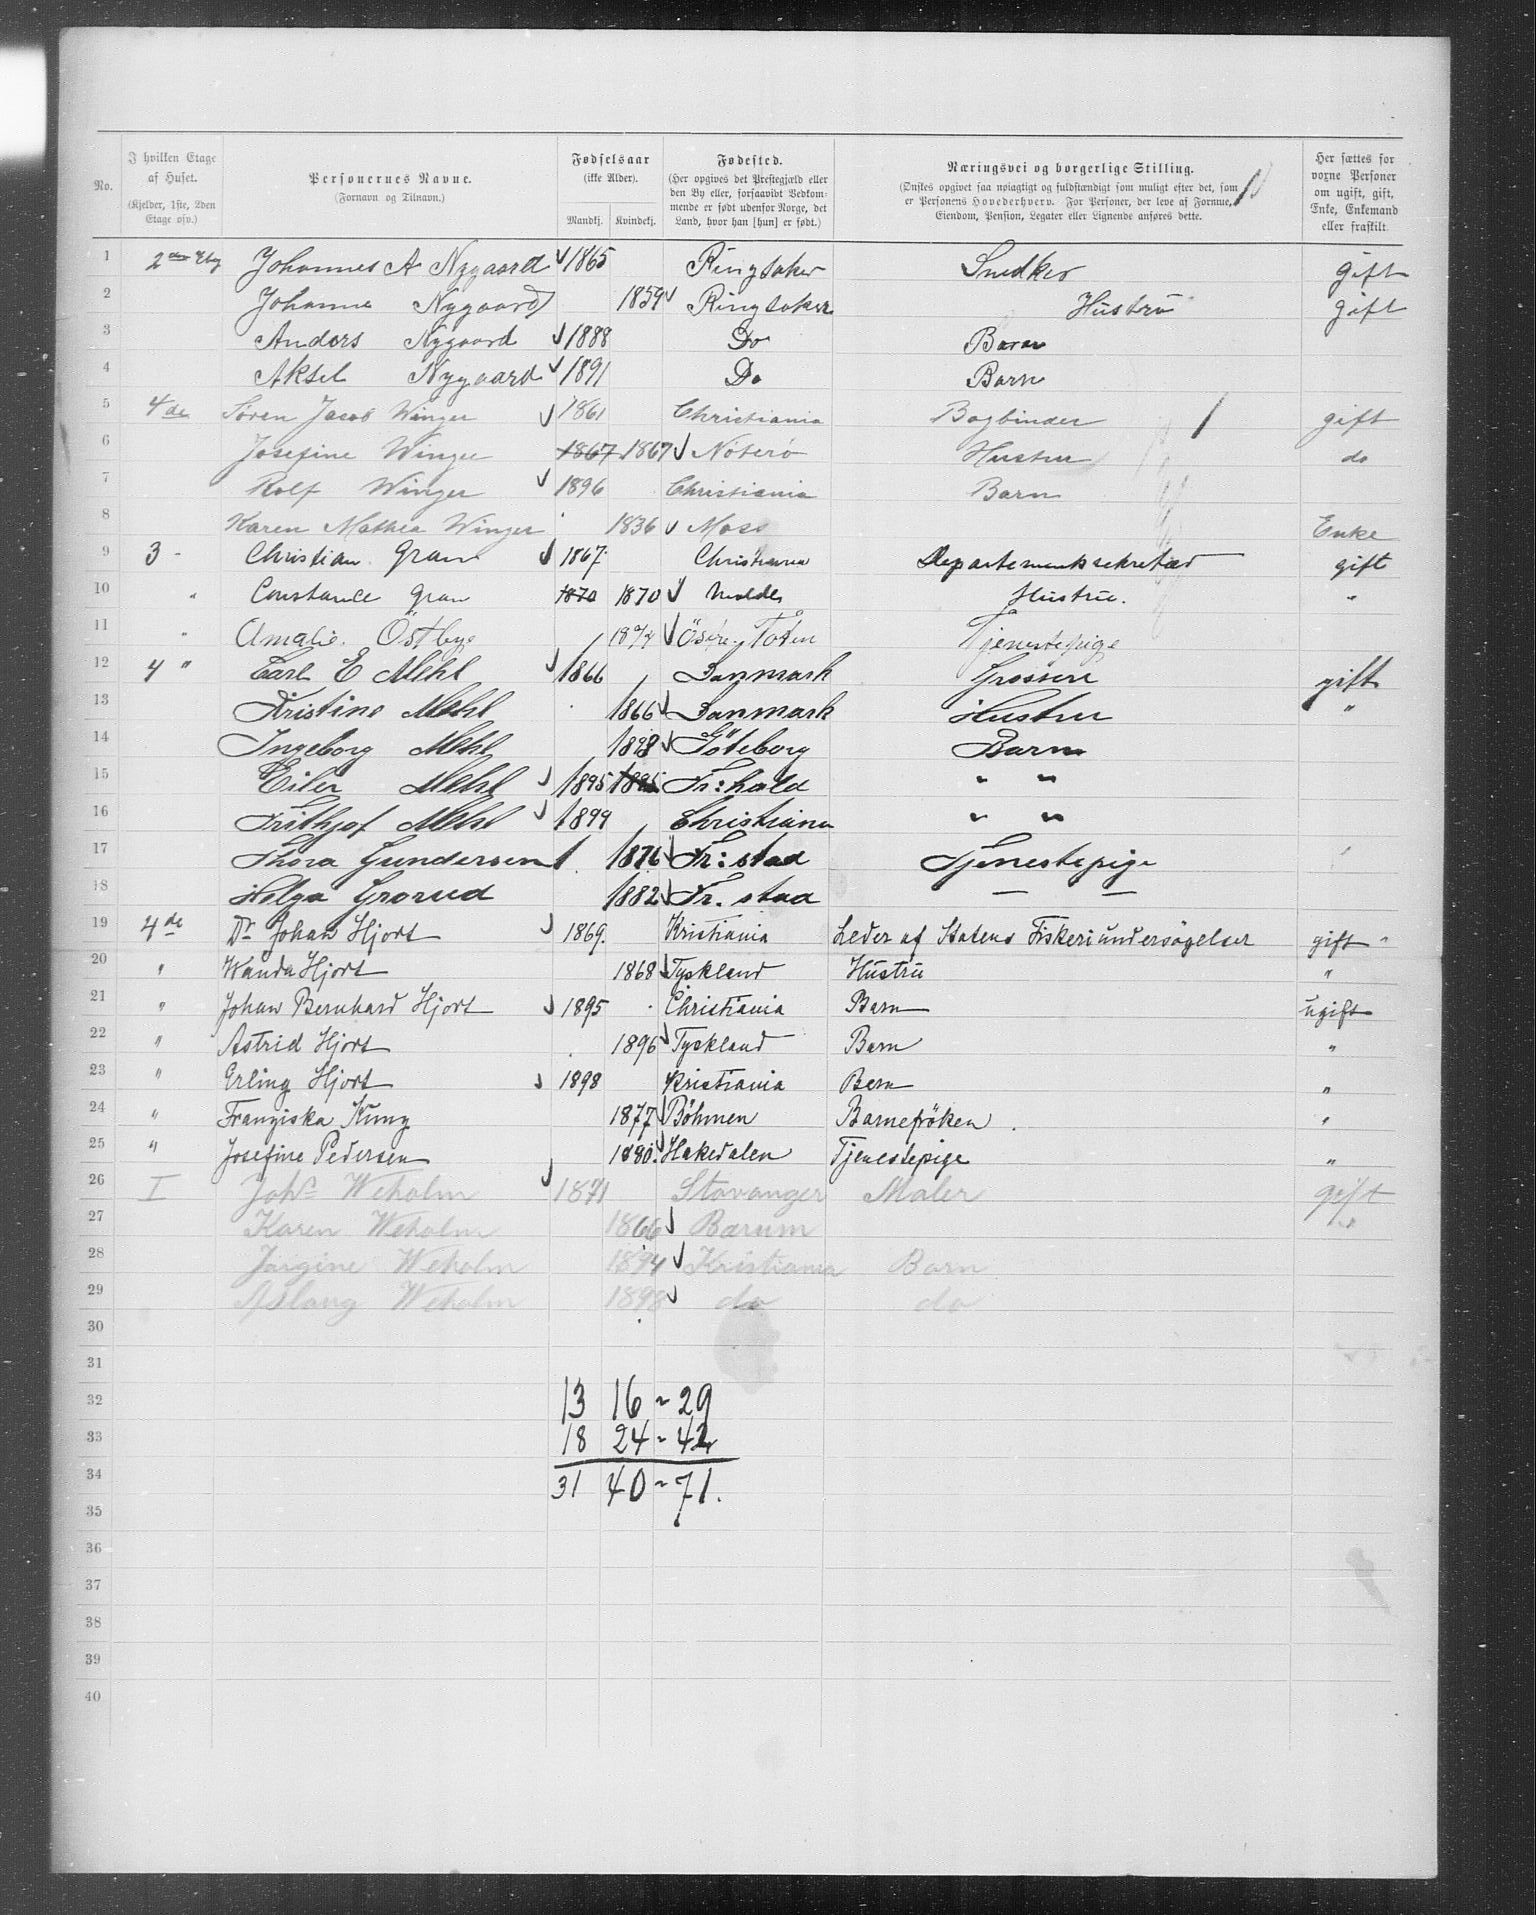 No. I hvilken Etage af Huset. (Kjelder, 1ste, 2den Etage osv.) Personernes Navne. (Fornavn og Tilnavn.) Fødselsaar (ikke Alder). Mandkj. Kvindekj. Fødested. (Her opgives det Prestegjæld eller den By eller, forsaavidt Vedkommende er født udenfor Norge, det Land, hvor han [hun] er født.) Næringsvei og borgerlige Stilling. (Ønskes opgivet saa nøiagtigt og fuldstændigt som muligt efter det, som er Personens Hovederhverv. For Personer, der leve af Formue, Eiendom, Pension, Legater eller Lignende anføres dette. Her sættes for voxne Personer om ugift, gift, Enke, Enkemand eller fraskilt.
1 2den Etg Johannes A Nygaard 1865 Ringsaker Snedker gift
2 Johanne Nygaard 1859 Ringsaker Hustru gift
3 Anders Nygaard 1888 Do Barn
4 Aksel Nygaard 1891 Do Barn
5 4de Søren Jacob Winger 1861 Christiania Bogbinder gift
6 Josefine Winger 1867 1867 Nøterø Hustru do
7 Rolf Winger 1896 Christiania Barn
8 Karen Mathea Winger 1836 Moss Enke
9 3 - Christian Gran 1867 Christiania Departementssekretær gift
10 " Constance Gran 1870 1870 Molde Hustru. "
11 " Amalie Östbye 1874 Östre Toten Tjenestepige
12 4 " Carl E Mehl 1866 Danmark Grosserer gift
13 Kristine Mehl 1866 Danmark Hustru "
14 Ingeborg Mehl 1893 Göteborg Barn
15 Eiler Mehl 1895 1895 Fr:hald " "
16 Frithjof Mehl 1899 Christiania " "
17 Thora Gundersen 1876 Fr:stad Tjenestepige
18 Helga Grorud 1882 Fr. stad — —
19 4de Dr Johan Hjort 1869. Kristiania Leder af Statens Fiskeriundersøgelser gift
20 " Wanda Hjort 1868 Tyskland Hustru "
21 " Johan Bernhard Hjort 1895 Christiania Barn ugift
22 " Astrid Hjort 1896 Tyskland Barn "
23 " Erling Hjort 1898 Kristiania Barn "
24 " Franziska Kung 1877 Böhmen Barnefröken. "
25 " Josefine Pedersen 1880. Hakedalen Tjenestepige "
26 I Johs Weholm 1871 Stavanger Maler gift
27 Karen Weholm 1866 Bærum "
28 Jørgine Weholm 1894 Kristiania Barn
29 Aslaug Weholm 1898 do do
30
31
32 13 16 - 29
33 18 24 - 42
34 31 40 - 71.
35
36
37
38
39
40